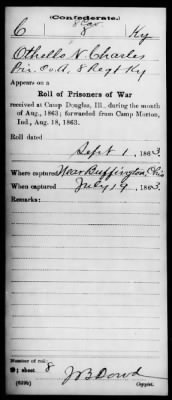 (Confederate.)
8 Cav
C 8 Ky
Othello N. Charles
Pri. Co. A. 8 Regt Ky
Appears on a
Roll of Prisoners of War
received at Camp Douglas, Ill., during the month
of Aug., 1863; forwarded from Camp Morton,
Ind., Aug. 18, 1863.
Roll dated
Sept 1, 1863.
Where captured Near Buffington, Ohio
When captured July 19, 1863.
Remarks:
Number of roll:
8; sheet 8
J B Dowd
(639b) Copyist.